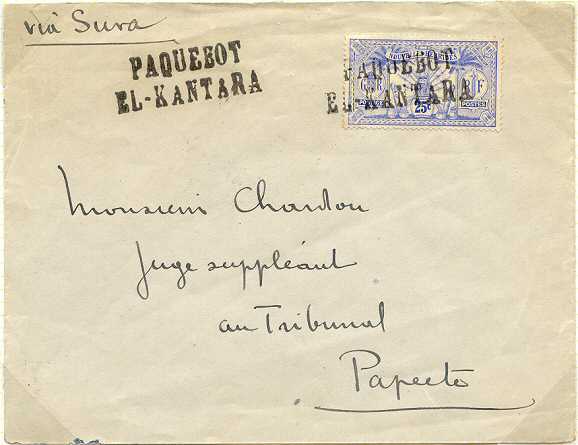 via Suva
PAQUEBOT
EL-KANTARA
PAQUEBOT
EL-KANTARA
25c
F
POSTES
Monsieur Chardou
Juge suppléant
au Tribunal
Papeete